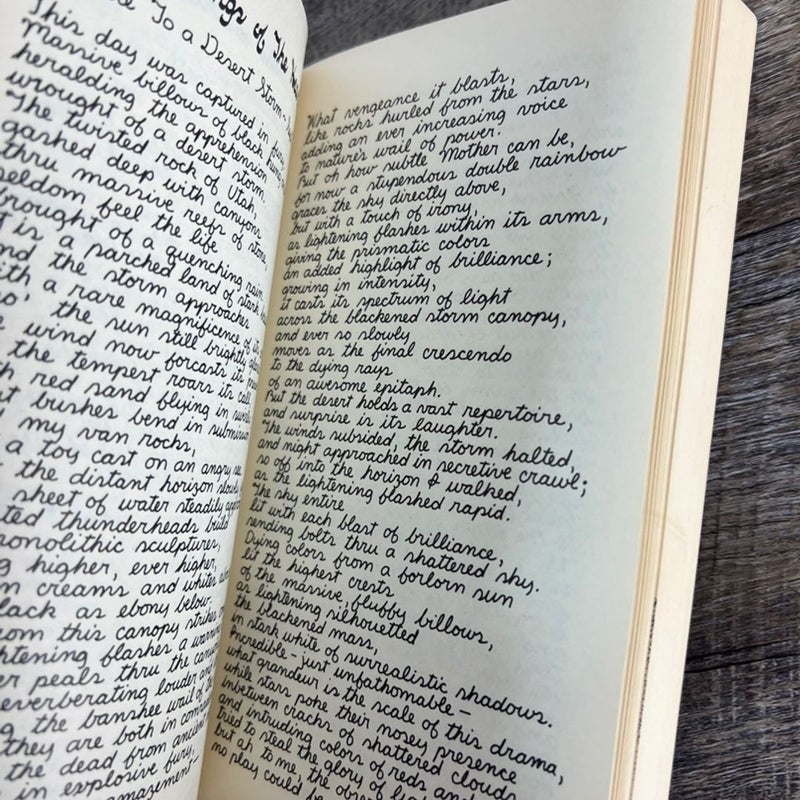 ngs of The
To a Desert Storm-
This day was captured in
Massive billows of black
heralding the apprehension
wrought of a desert storm.
The twisted rock of Utah,
gashed deep with canyons
thru massive reefs of stone,
seldom feel the life
wrought of a quenching rain.
It is a parched land of stark
and the storm approaches
with a rare magnificence of its
the sun still brightly
wind now forcasts its
the tempest roars its call
red sand flying in
bushes bend in
my van rocks,
a toy cast on an angry
the distant horizon
sheet of water steadily
thunderheads build
monolithic sculptures,
higher, ever higher,
creams and whites
black as ebony below.
from this canopy strikes
lightening flashes a
peals thru the
reverberating louder
the banshee wail of
they are both in
the dead from ancient
in explosive fury,
amazement
What vengeance it blasts,
like rocks hurled from the stars,
adding an ever increasing voice
to nature's wail of power.
But oh how subtle Mother can be,
for now a stupendous double rainbow
graces the sky directly above,
but with a touch of irony,
as lightening flashes within its arms,
giving the prismatic colors
an added highlight of brilliance;
growing in intensity,
it casts its spectrum of light
across the blackened storm canopy,
and ever so slowly
moves as the final crescendo
to the dying rays
of an awesome epitaph.
But the desert holds a vast repertoire,
and surprise is its laughter.
The winds subsided, the storm halted,
and night approached in secretive crawl;
so off into the horizon I walked,
as the lightening flashed rapid.
The sky entire
lit with each blast of brilliance,
sending bolts thru a shattered sky.
Dying colors from a forlorn sun
lit the highest crests
of the massive, fluffy billows,
as lightening silhouetted
the blackened mass,
in stark white of surrealistic shadows.
Incredible - just unfathomable -
what grandeur is the scale of this drama,
while stars poke their nosey presence
inbetween cracks of shattered clouds
and intruding colors of reds and
tried to steal the glory of
but ah to me, the
no play could be